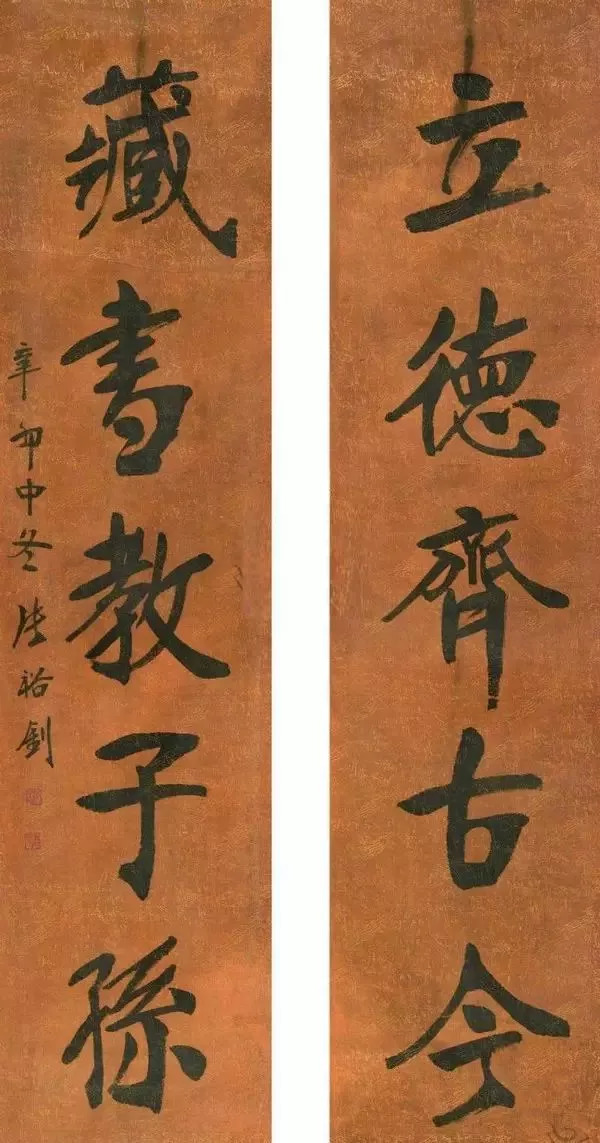 立德齊古今
藏書教子孫
辛卯中冬張裕釗